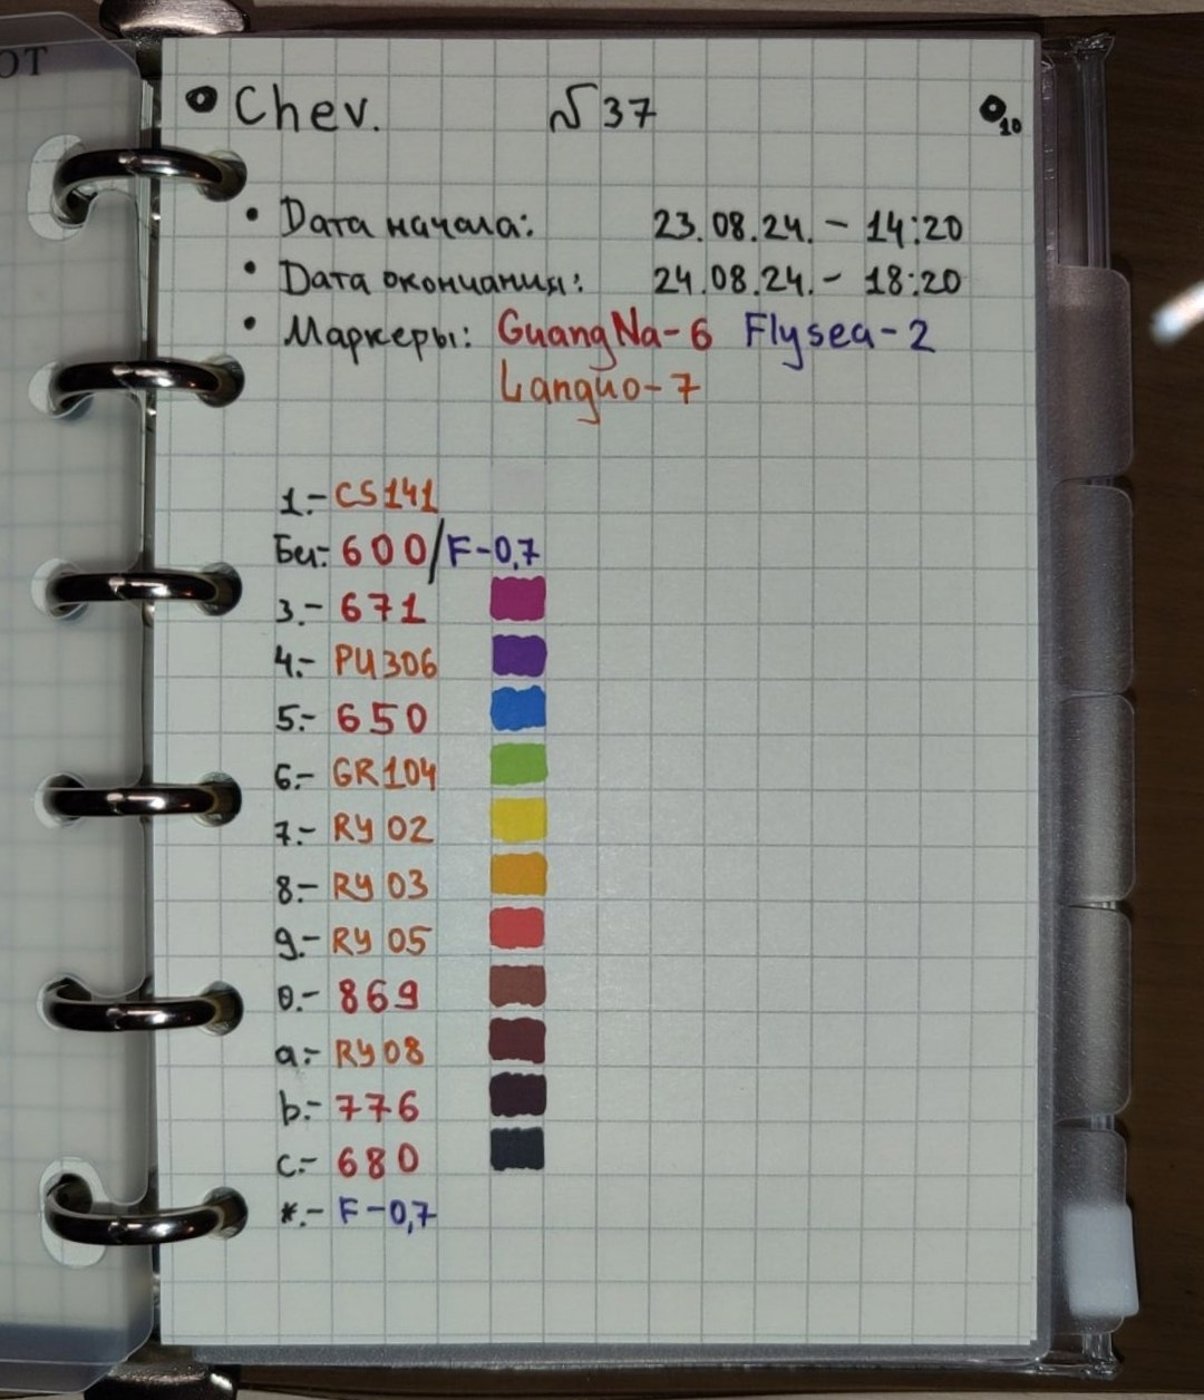 ОТ
Chev. №37 10
• Дата начала: 23.08.24. - 14:20
• Дата окончания: 24.08.24. - 18:20
• Маркеры: GuangNa-6 Flysea-2
Languo-7
1.- CS141
Бел.- 600/F-0,7
3.- 671
4.- PU306
5.- 650
6.- GR104
7.- RY02
8.- RY03
9.- RY05
0.- 869
a.- RY08
b.- 776
c.- 680
*.- F-0,7